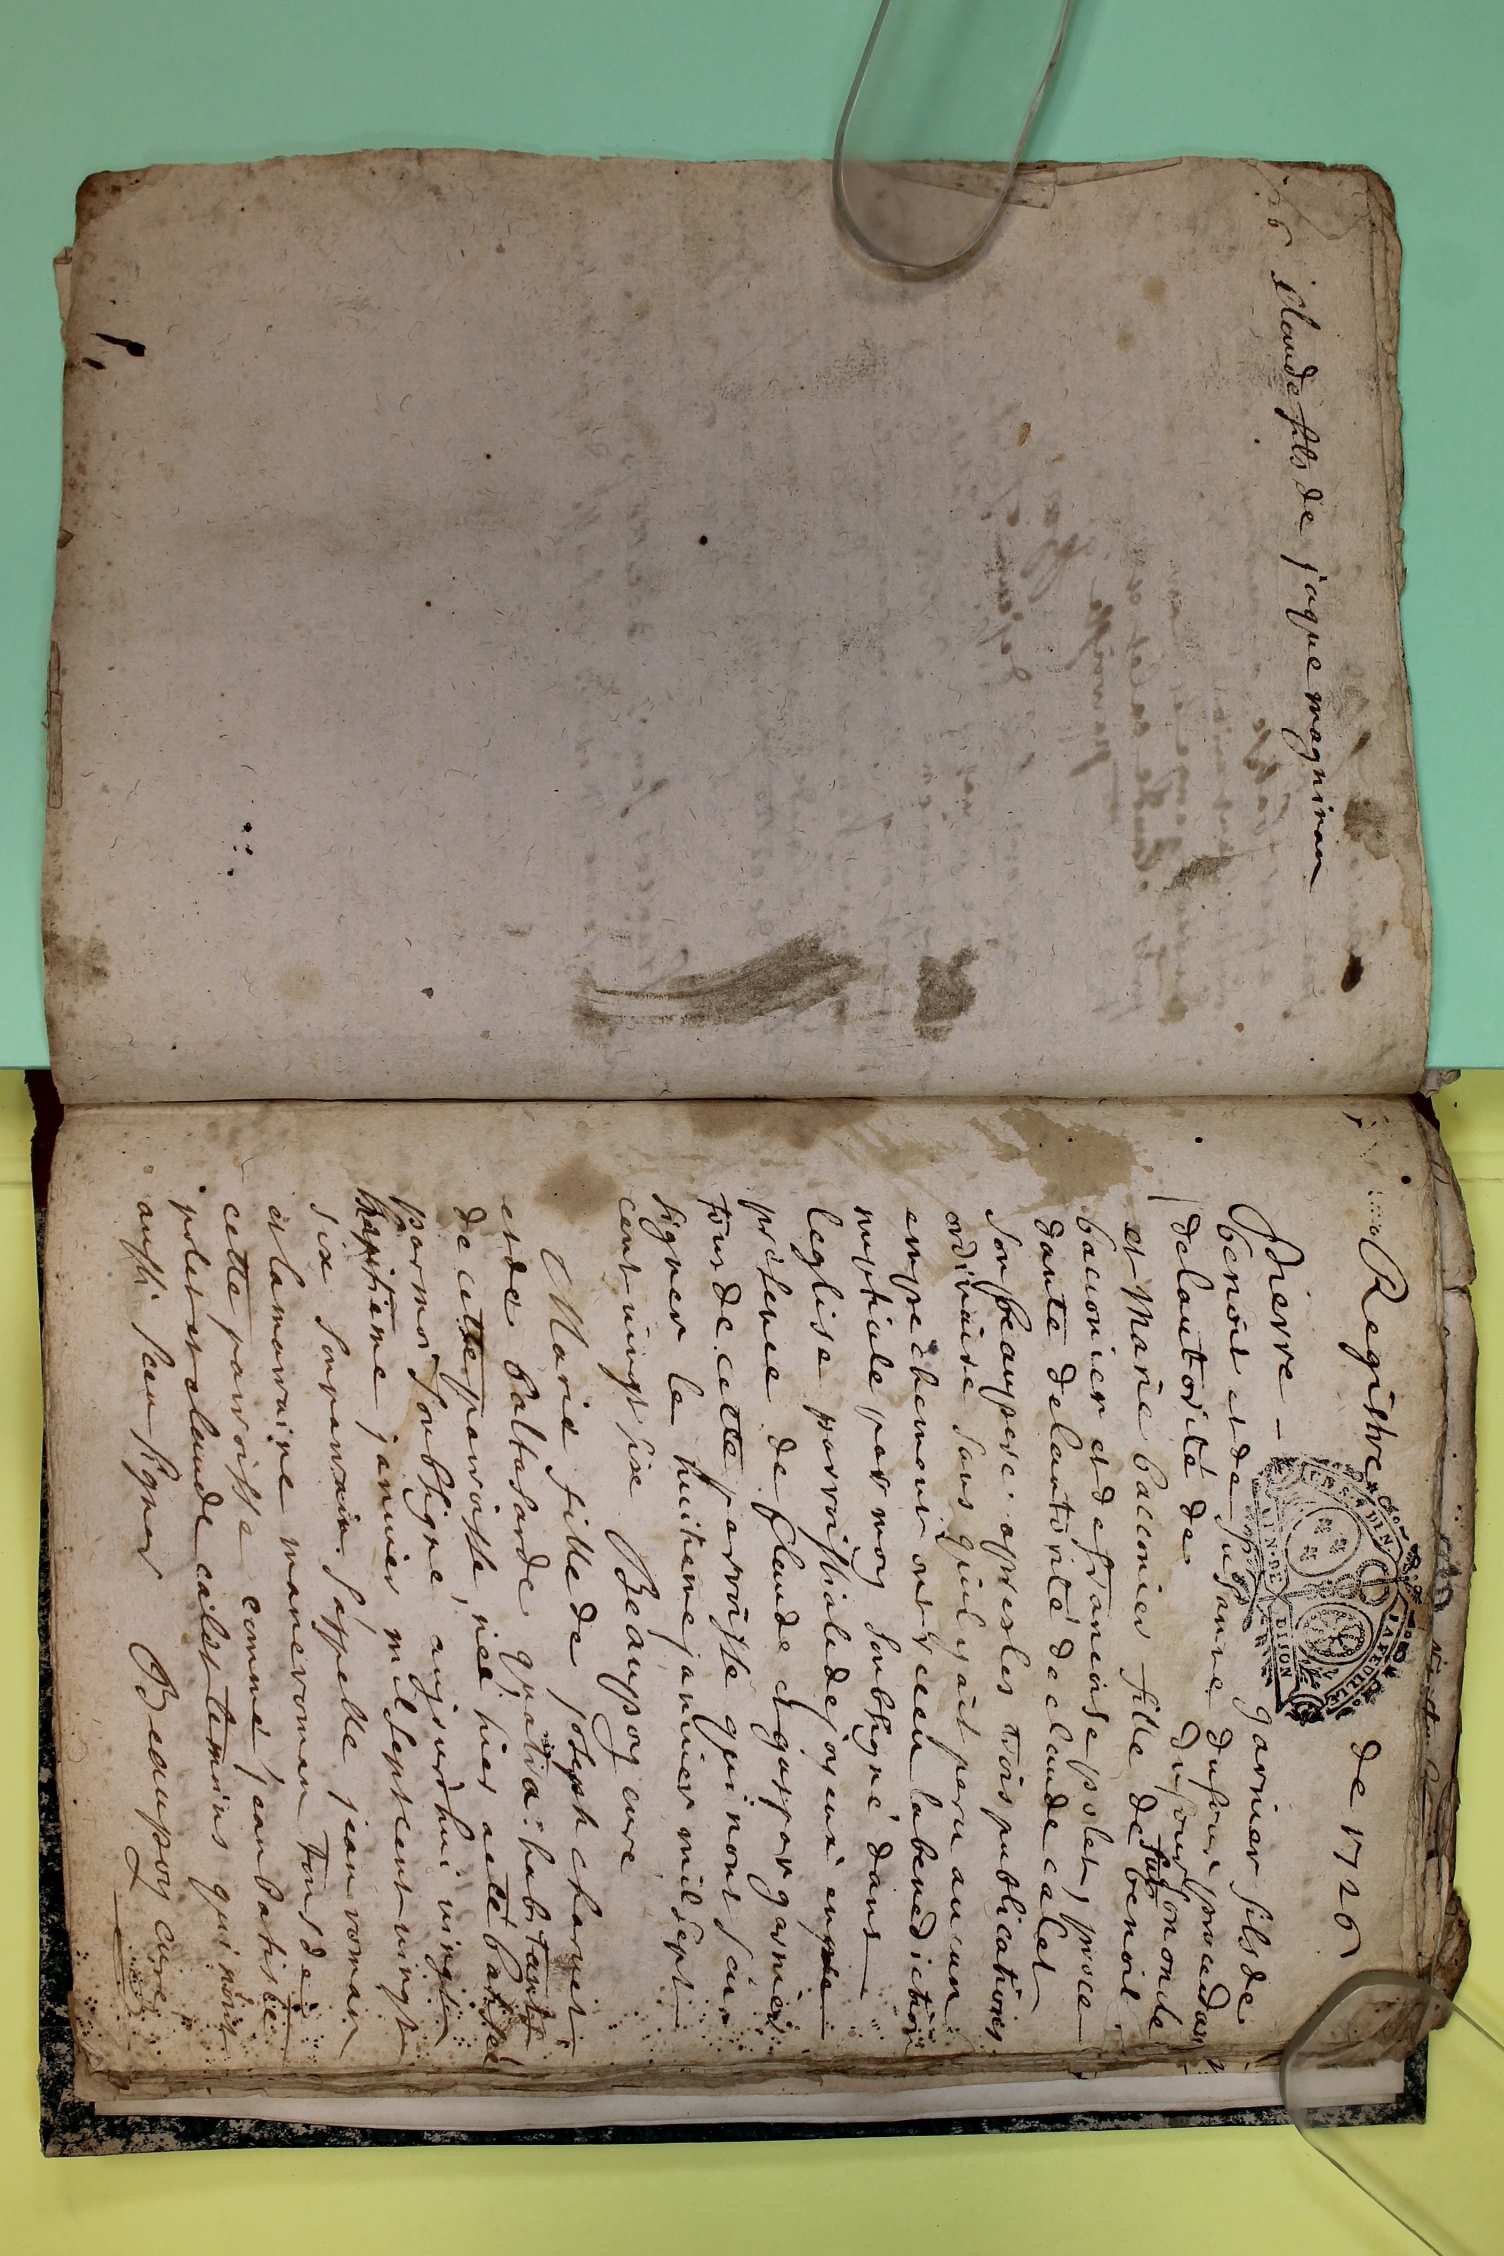 claude fils de jaque magniran
Registre de 1726
Pierre - garnier fils de
benoit et de susanne dufour procedant
de lautorité de dufour son oncle
et Marie bacconier fille de fut benoit
bacconier et de francoise polet, proce
dante de lautorité de claude calet
son beaupere. apres les trois publications
ordinaire sans quil y ait peru aucun
empechement ont receu la benediction
nuptiale par moy soubsigné dans
leglise parroissiale de joyeux en pre
presence de claude et gaspar garnier
tous de cette parroisse qui nont sçeu
signer le huitieme janvier mil sept
cent vingt six Beaupoy cure
Marie fille de joseph charvet
et de baltasarde habitants
de cette parroisse, neé hier a eté batisé
par moy soubsigne aujourdhui vingt
septieme janvier mil sept cent vingt
six son parrain sappelle jean roman
et la marraine marie roman tous de
cette parroisse comme jean batiste
polet et claude calet temoins qui nont
aussi sceu signer Beaupoy curé
GEN DE DIJON